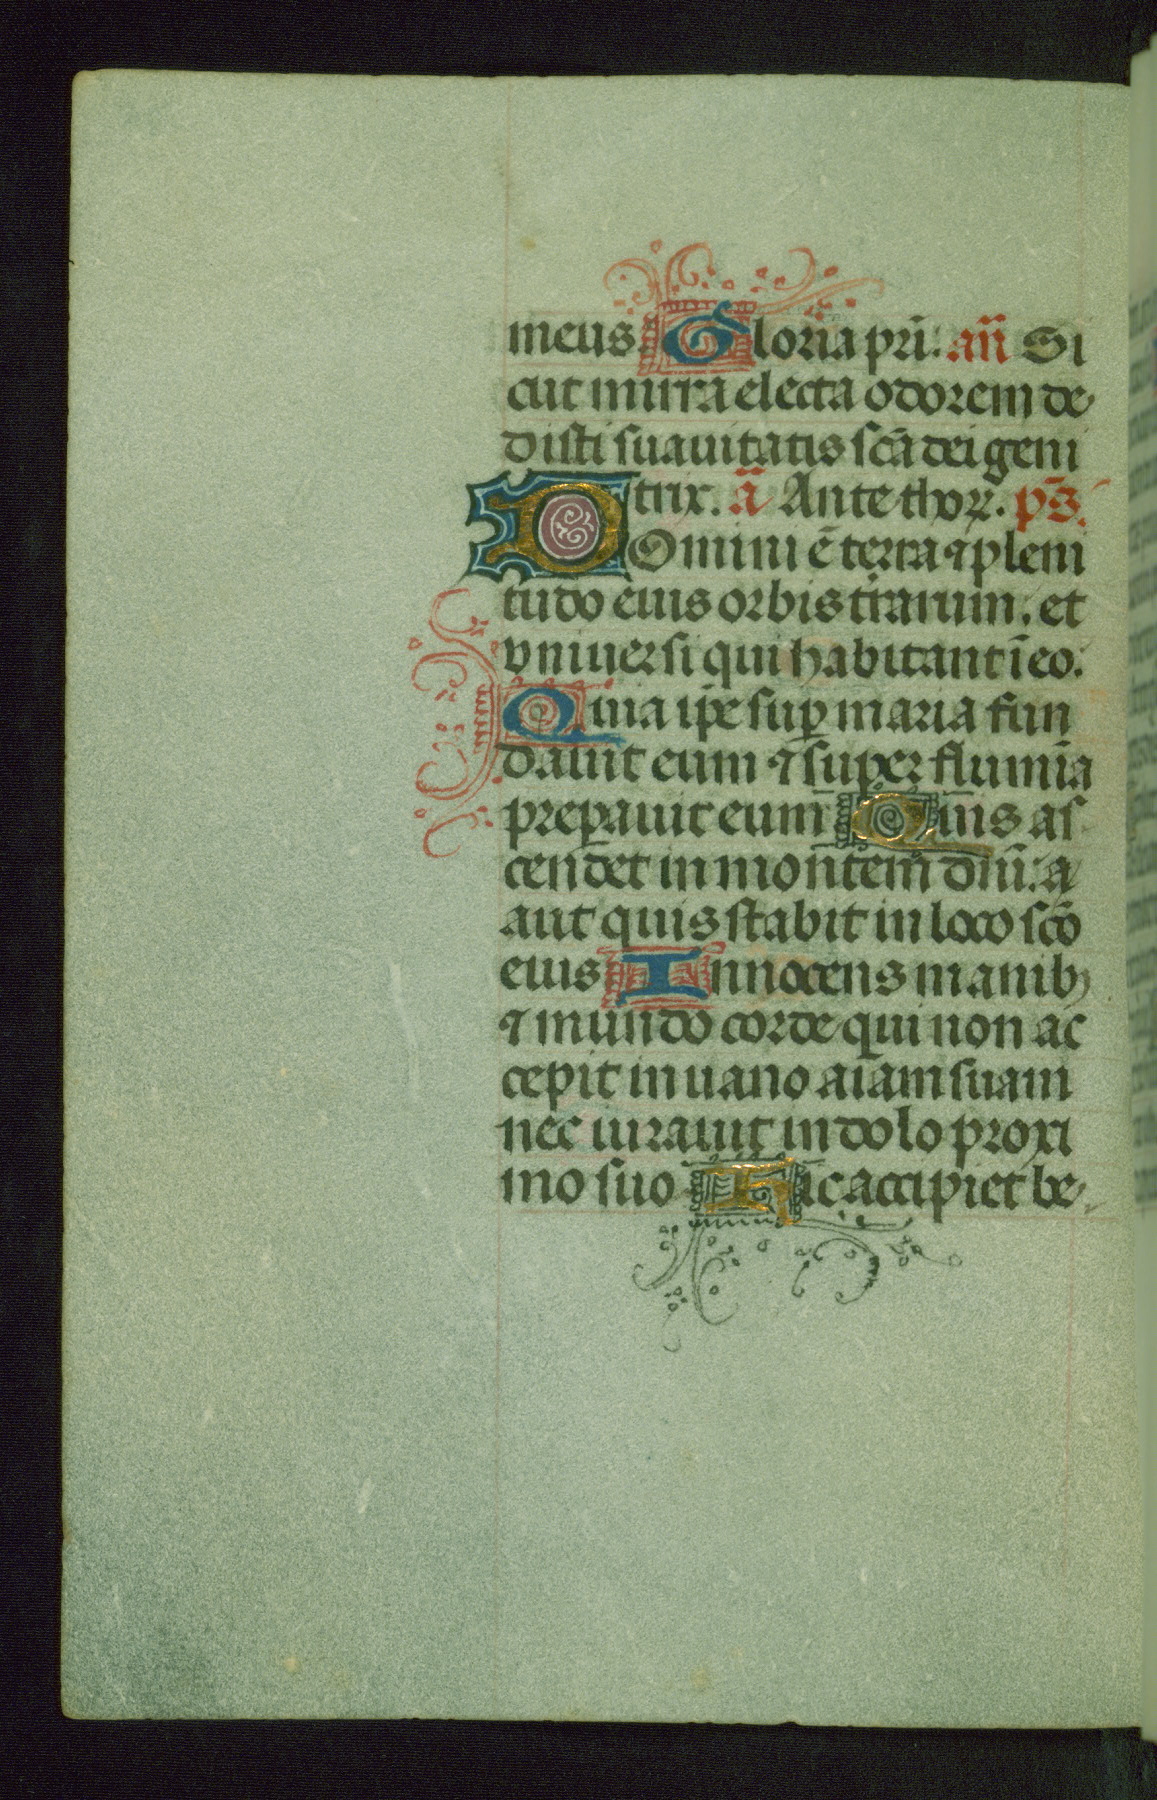 meus. Gloria pr̄i. an̄ Si
cut mirra electa odorem de
disti suauitatis sc̄a dei geni
trix. ā Ante thoꝝ. ps̄.
DOmini ē terra ⁊ pleni
tudo eius orbis t̄rarum. et
vniuersi qui habitant ī eo.
Quia ip̄e suꝑ maria fun
dauit eum ⁊ super flumīa
preꝑauit eum Quis as
cendet in montem dn̄i: a
aut quis stabit in loco sc̄o
eius Innocens manibꝫ
⁊ mundo corde qui non ac
cepit in uano aīam suam
nec iurauit in dolo proxi
mo suo Hic accipiet be